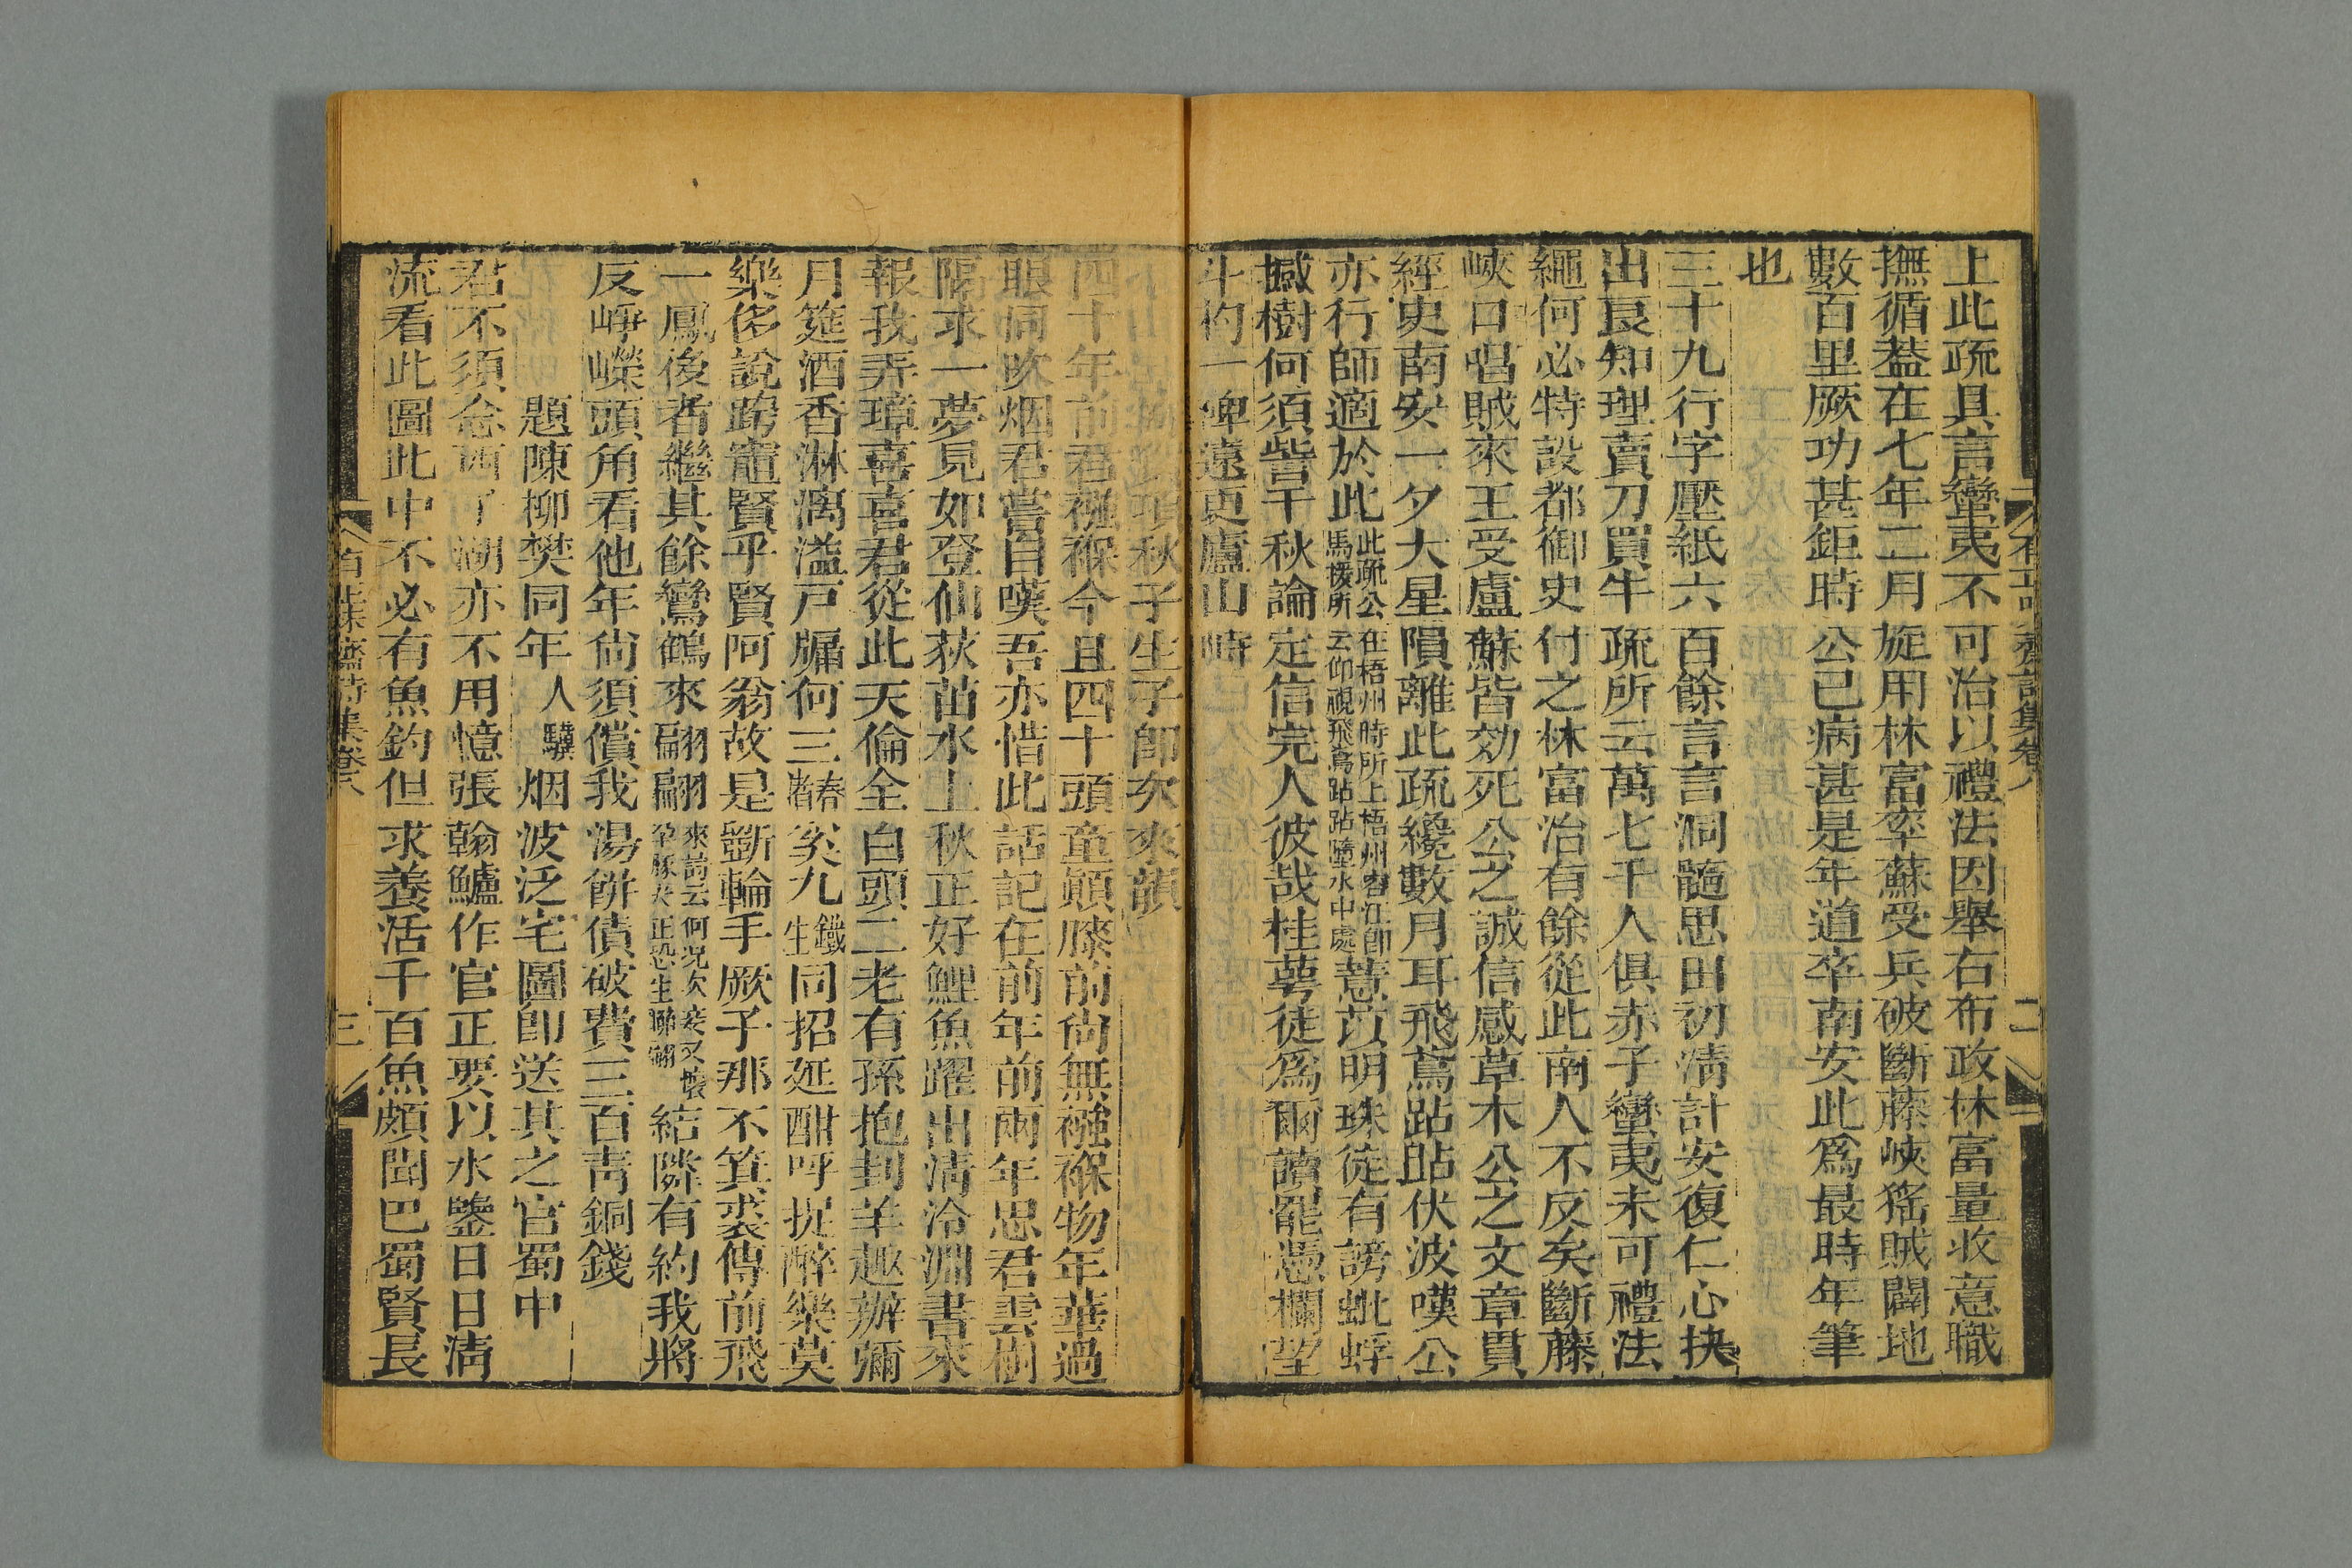 上此疏具言蠻夷不可治以禮法因舉右布政林富量收意職
撫循葢在七年二月旋用林富率蘇受兵破斷藤峽猺賊闢地
數百里厥功甚鉅時公已病甚是年道卒南安此爲最時年筆
也
三十九行字壓紙六百餘言言言洞髓思田初清計安復仁心抉
出良知理賣刀買牛疏所云萬七千人俱赤子蠻夷未可禮法
繩何必特設都御史付之林富治有餘從此南人不反矣斷藤
峽口唱賊來王受盧蘇皆効死公之誠信感草木公之文章貫
經史南安一夕大星隕離此疏纔數月耳飛鳶跕跕伏波嘆公
亦行師適於此此疏公在梧州時所上梧州者江卽馬援所云仰視飛鳶跕跕墮水中處薏苡明珠徒有謗蚍蜉
撼樹何須訾千秋論定信完人彼哉桂萼徒爲爾讀罷憑欄望
斗杓一碑遠更廬山時
項秋子生子卽次來韻
四十年前君襁褓今且四十頭童顚膝前尙無襁褓物年華過
眼同吹烟君嘗自嘆吾亦惜此話記在前年前兩年思君雲樹
隔求一夢見如登仙荻苗水上秋正好鯉魚躍出清泠淵書來
報我弄璋喜喜君從此天倫全白頭二老有孫抱刲羊趣辦彌
月筵酒香淋漓溢戸牖何三春渚奚九鐵生同招延酣呼捉醉樂莫
樂侈說跨竈賢乎賢阿翁故是斵輪手厥子那不箕裘傳前飛
一鳳後者繼其餘鸞鶴來翩翩翩翩來詩云何況次妾又懷孕豚犬正恐生聯翩結隣有約我將
反崢嶸頭角看他年尙須償我湯餠債破費三百靑銅錢
題陳柳樊同年人驥烟波泛宅圖卽送其之官蜀中
君不須念西子湖亦不用憶張翰鱸作官正要以水鑒日日清
流看此圖此中不必有魚釣但求養活千百魚頗聞巴蜀賢長
有正味齋詩集卷八
二
有正味齋詩集卷八
三